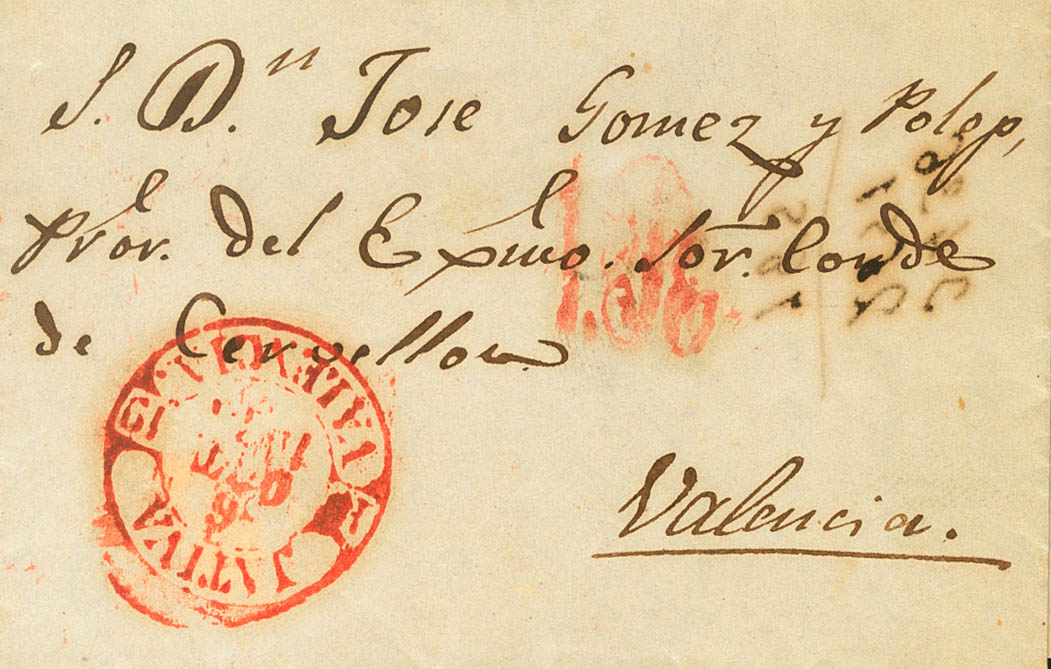 S. Dⁿ. Jose Gomez y Polop,
Pror. del Exmo. Sor. Conde
de Cervellon.
Valencia.
JATIVA